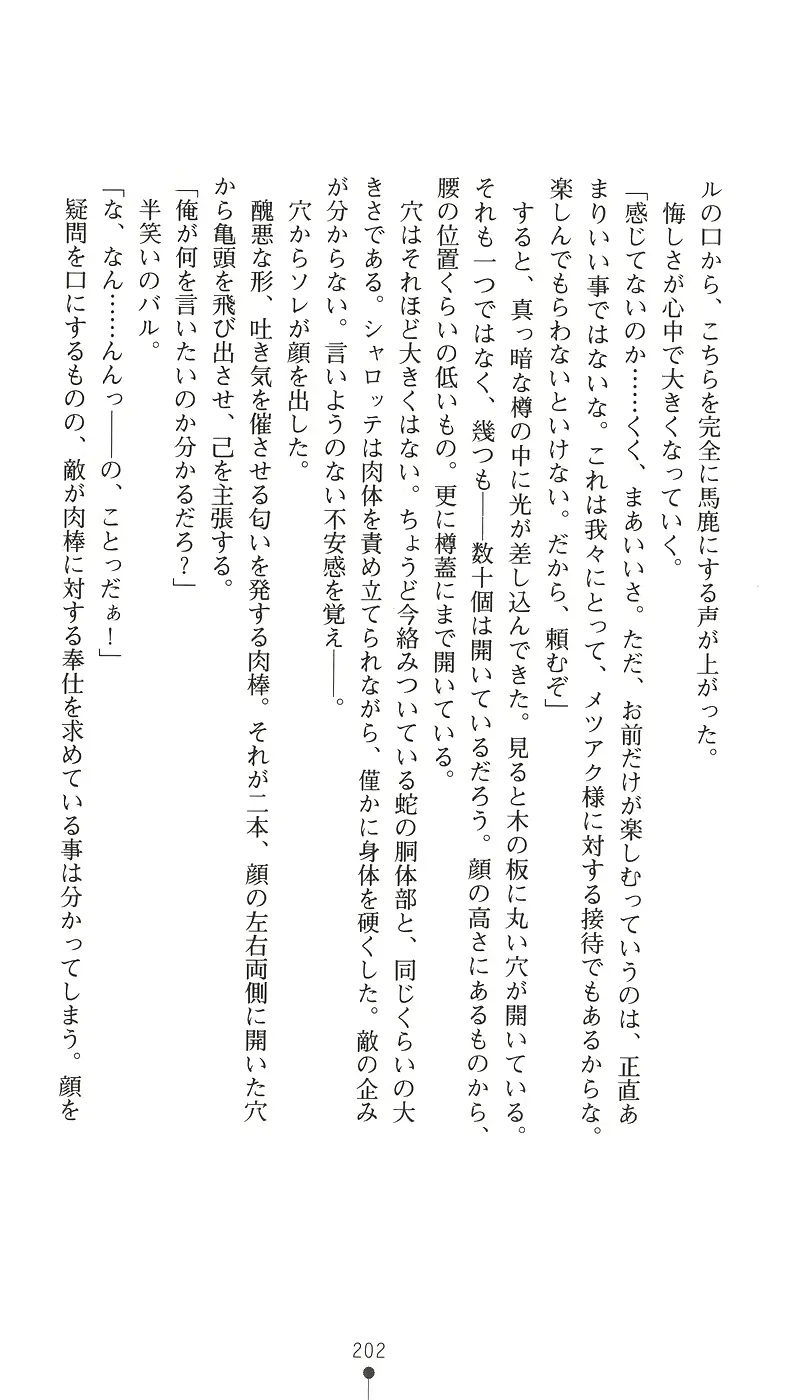 ルの口から、こちらを完全に馬鹿にする声が上がった。
悔しさが心中で大きくなっていく。
「感じてないのか……くく、まあいいさ。ただ、お前だけが楽しむっていうのは、正直あ
まりいい事ではないな。これは我々にとって、メツアク様に対する接待でもあるからな。
楽しんでもらわないといけない。だから、頼むぞ」
すると、真っ暗な樽の中に光が差し込んできた。見ると木の板に丸い穴が開いている。
それも一つではなく、幾つも――数十個は開いているだろう。顔の高さにあるものから、
腰の位置くらいの低いもの。更に樽蓋にまで開いている。
穴はそれほど大きくはない。ちょうど今絡みついている蛇の胴体部と、同じくらいの大
きさである。シャロッテは肉体を責め立てられながら、僅かに身体を硬くした。敵の企み
が分からない。言いようのない不安感を覚え――。
穴からソレが顔を出した。
醜悪な形、吐き気を催させる匂いを発する肉棒。それが二本、顔の左右両側に開いた穴
から亀頭を飛び出させ、己を主張する。
「俺が何を言いたいのか分かるだろ？」
半笑いのバル。
「な、なん……んんっ――の、ことっだぁ！」
疑問を口にするものの、敵が肉棒に対する奉仕を求めている事は分かってしまう。顔を
202